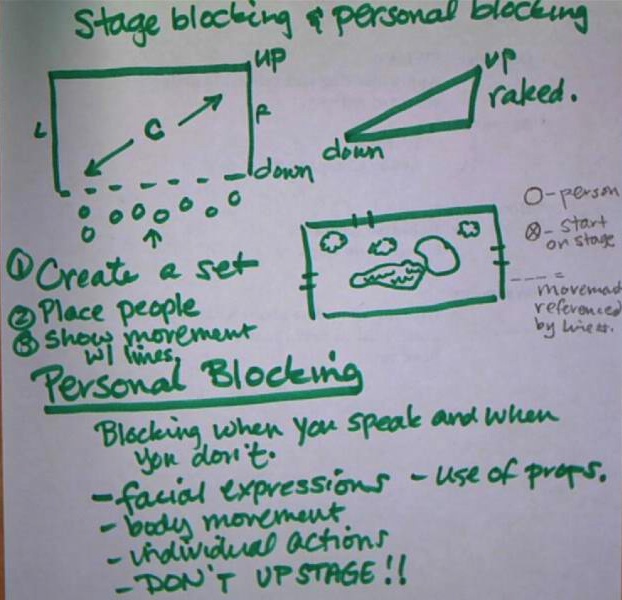 Stage blocking & personal blocking
up
up
raked.
L
C
R
down
down
O - person
⊗ - start on stage
---- =
movement
referenced
by lines.
① Create a set
② Place people
③ Show movement
w/ lines.
Personal Blocking
Blocking when you speak and when
you don't.
- facial expressions - use of props.
- body movement
- individual actions
- DON'T UPSTAGE!!